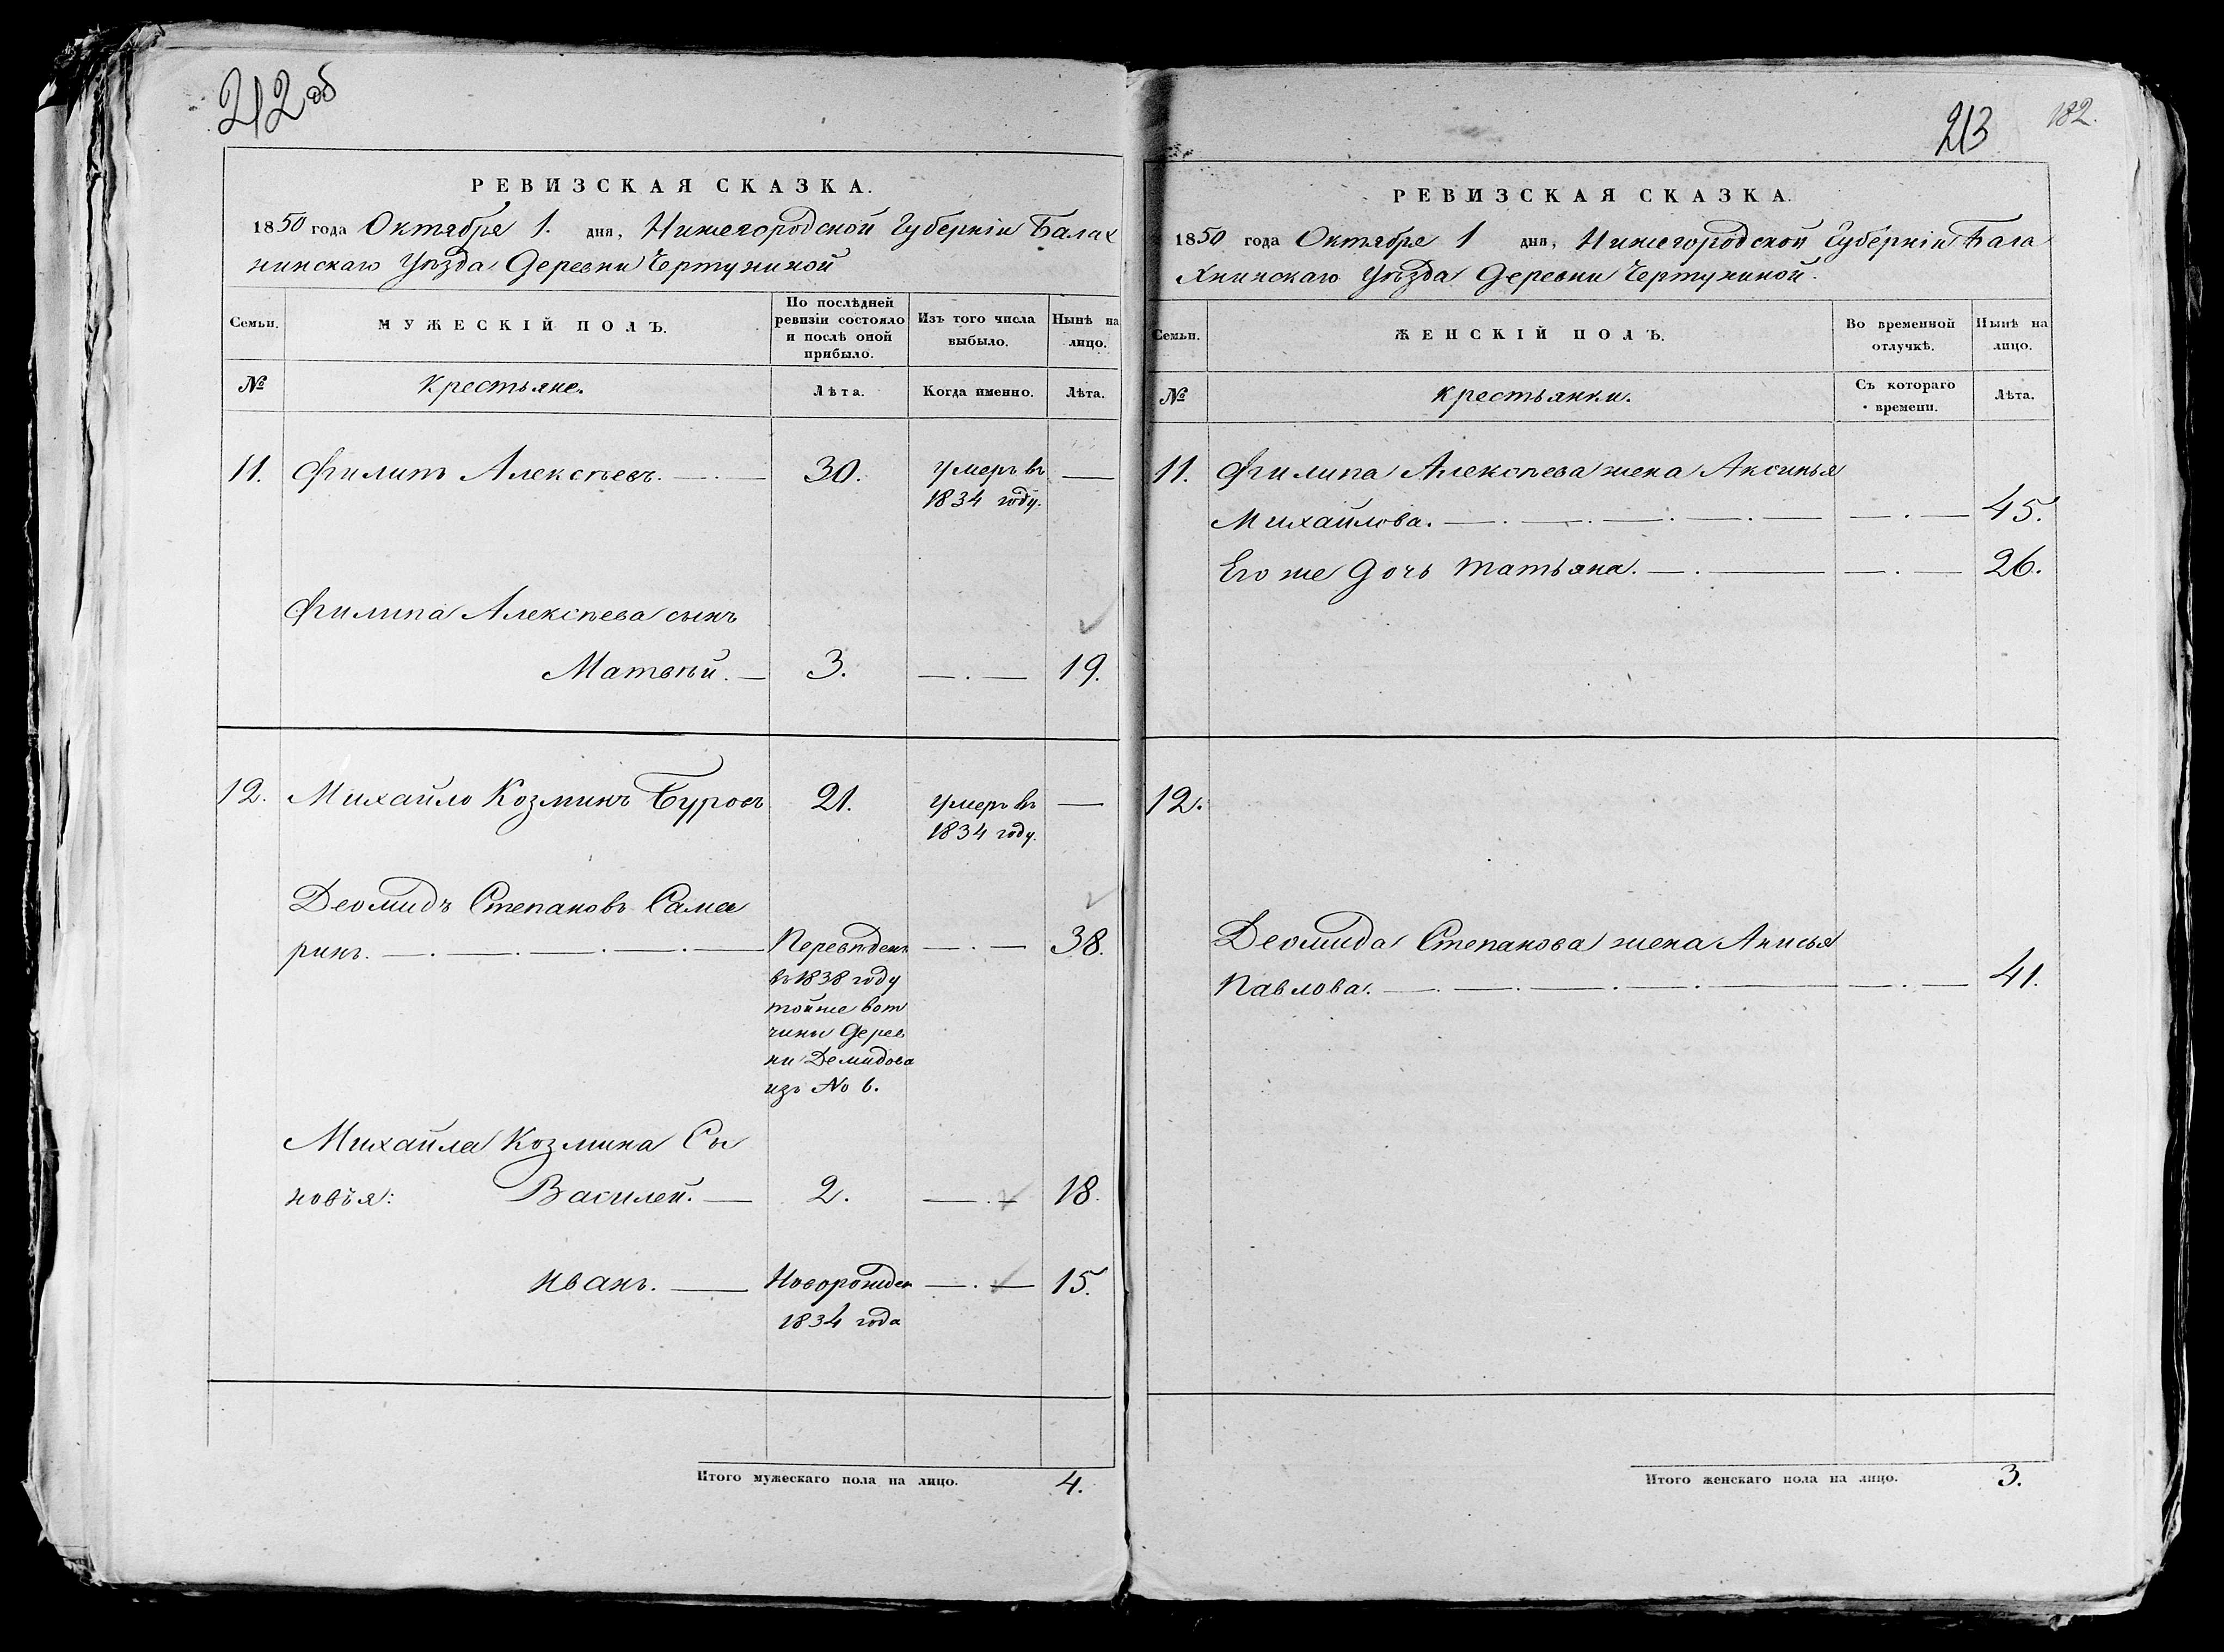 212 об
РЕВИЗСКАЯ СКАЗКА.
1850 года Октября 1. дня, Нижегородской Губерніи Балах
нинскаго Уѣзда Деревни Чертухиной
Семьи.
МУЖЕСКІЙ ПОЛЪ.
По послѣдней
ревизіи состояло
и послѣ оной
прибыло.
Изъ того числа
выбыло.
Нынѣ на
лицо.
№
Крестьяне.
Лѣта.
Когда именно.
Лѣта.
11. Филипъ Алексѣевъ. 30. умеръ въ
1834 году.
Филипа Алексѣева сынъ
Матвѣй. 3. 19.
12. Михайло Козминъ Буровъ 21. умеръ въ
1834 году.
Деомидъ Степановъ Сама
ринъ. Переведенъ 38.
въ 1838 году
тойже вот
чины Дерев
ни Демидова
изъ № 6.
Михайла Козмина Сы
новья: Василей. 2. 18.
Иванъ. Новорожден 15.
1834 года
Итого мужескаго пола на лицо. 4.
213 182.
РЕВИЗСКАЯ СКАЗКА.
1850 года Октября 1 дня, Нижегородской Губерніи Бала
хнинскаго Уѣзда Деревни Чертухиной.
Семьи.
ЖЕНСКІЙ ПОЛЪ.
Во временной
отлучкѣ.
Нынѣ на
лицо.
№
Крестьянки.
Съ котораго
времени.
Лѣта.
11. Филипа Алексѣева жена Аксинья
Михайлова. 45.
Его же Дочь Татьяна. 26.
12.
Деомида Степанова жена Анисья
Павлова. 41.
Итого женскаго пола на лицо. 3.